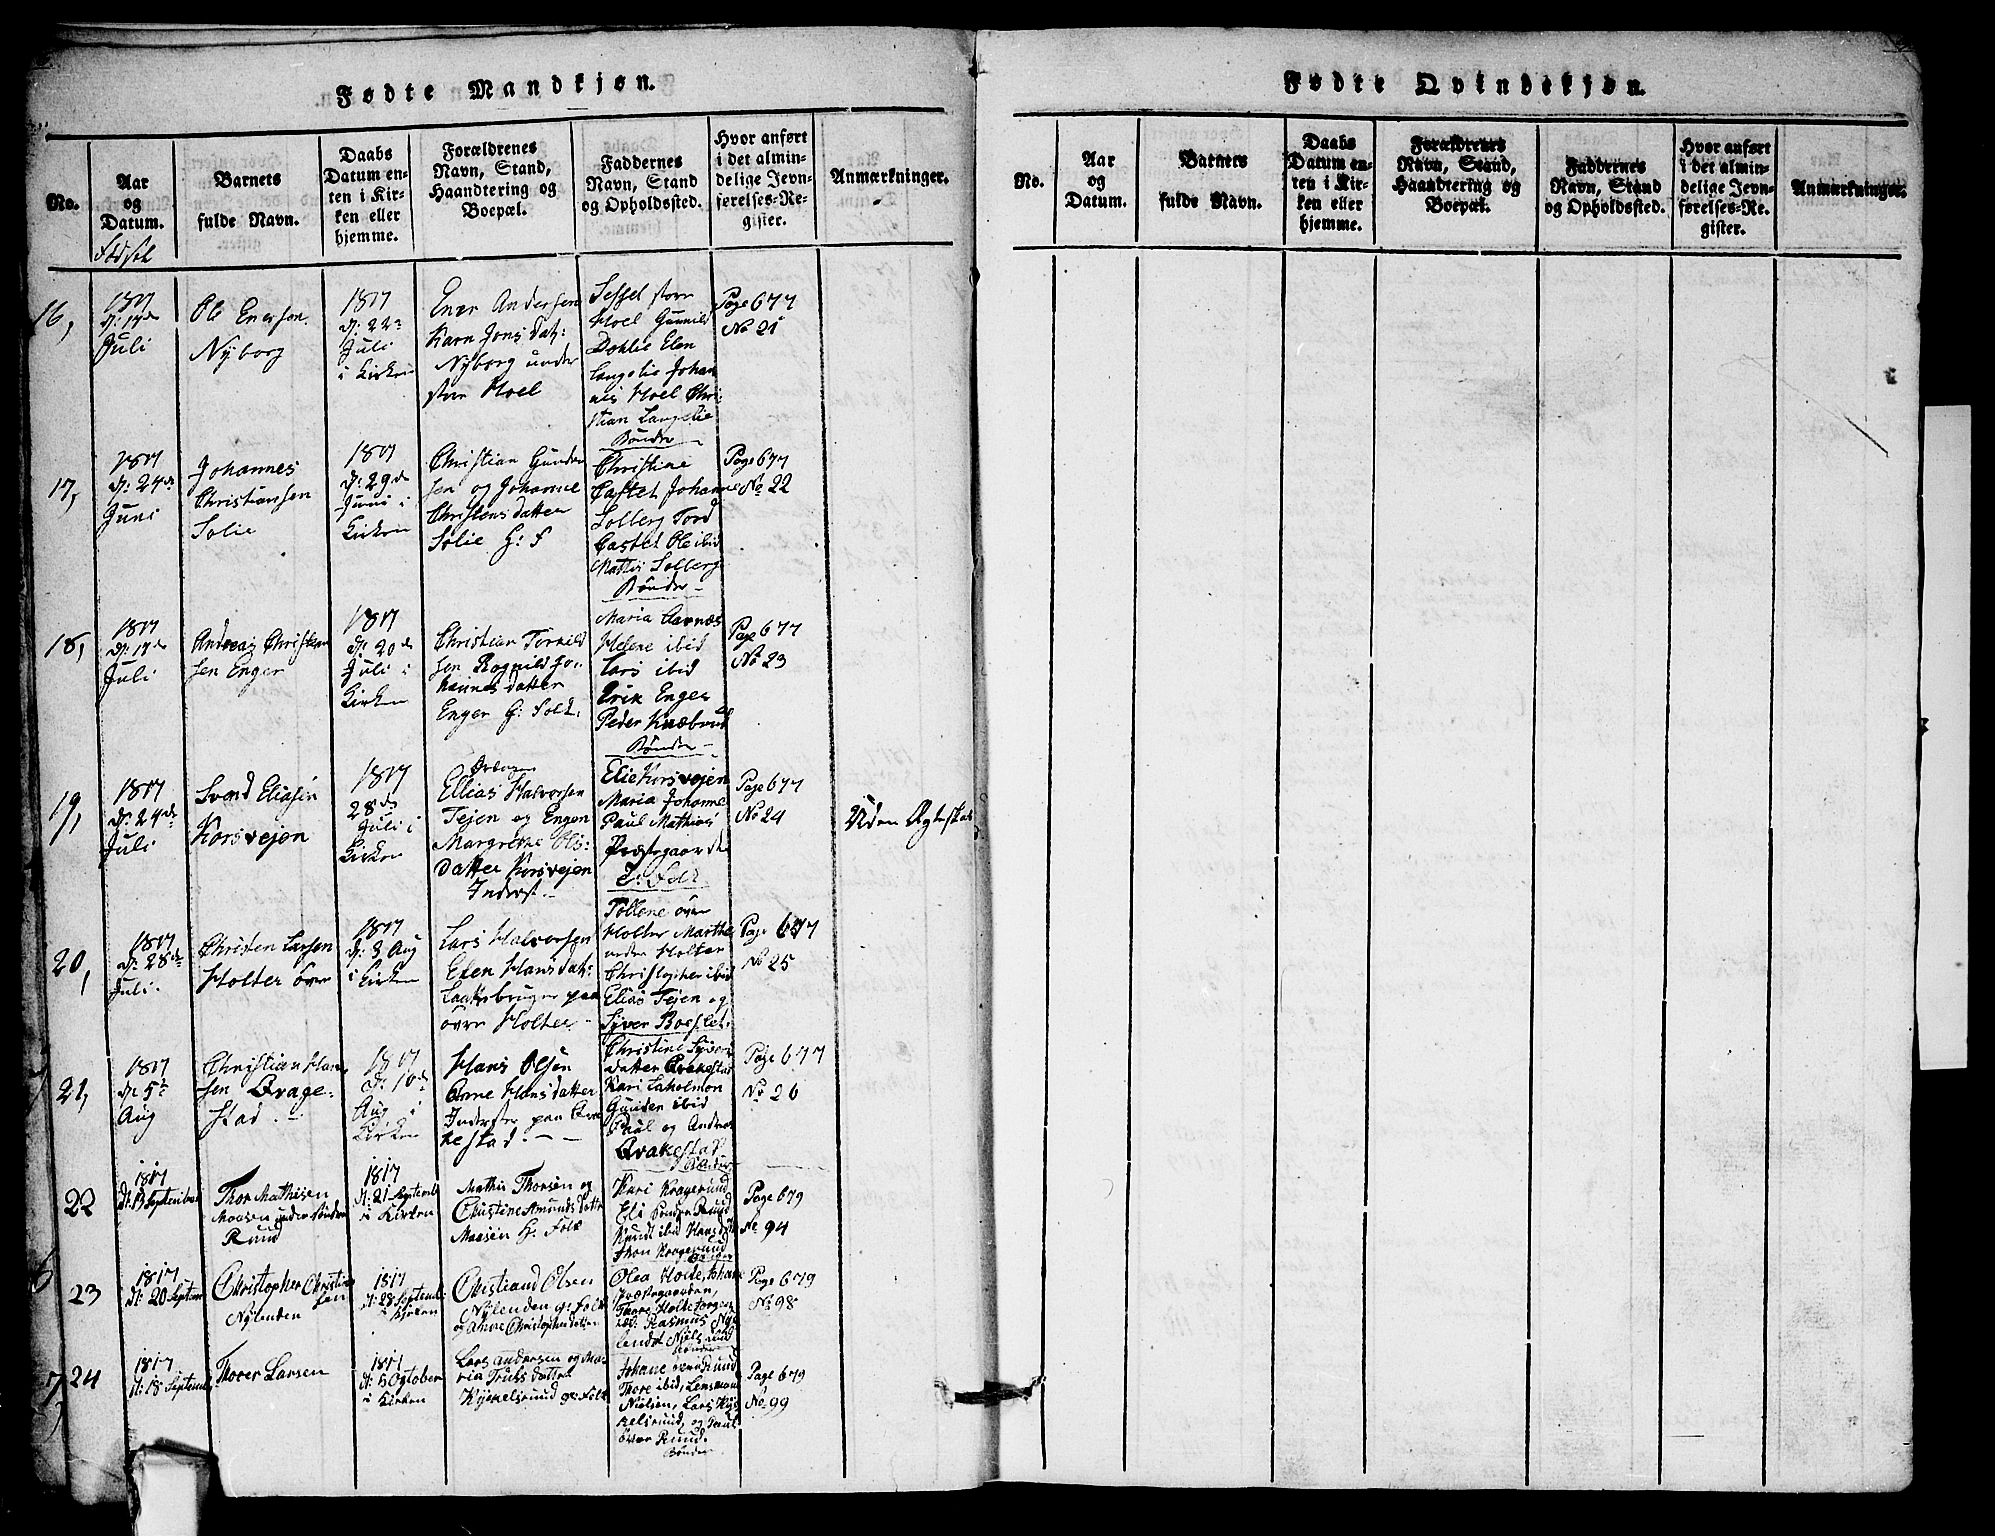 Fødte Mandkjøn.
No.
Aar
og
Datum.
Fødsel
Barnets
fulde Navn.
Daabs
Datum en-
ten i Kir-
ken eller
hjemme.
Forældrenes
Navn, Stand,
Haandtering og
Boepæl.
Faddernes
Navn, Stand
og Opholdssted.
Hvor anført
i det almin-
delige Jevn-
førelses-Re-
gister.
Anmærkninger.
16,
1817
d: 17de
Juli
Ole Enersen
Nyborg
1817
d: 22
Juli
i Kirken
Ener Andersen
Karn Jons dat:
Nyborg under
store Hoel
Sessel store
Hoel Gunnild
Dohlie Elen
Langelie Johan
nis Hoel Chri
stian Langelie
Bønder
Page 677
No 21
17,
1817
d: 24de
Juni
Johannes
Christiansen
Solie
1817
d: 29de
Juni i
Kirken
Christian Gunder
sen og Johanne
Christens datter
Solie G: F
Christine
Castet Johanne
Solberg Tord
Castet Ole ibid
Mathis Solberg
Bønder
Page 677
No 22
18,
1817
d: 17de
Juli
Andreas Christian
sen Enger
1817
d: 20de
Juli i
Kirken
Christian Torkild
sen Rognild Jo-
hannes datter
Enger G: Folk.
Maria Aarnæs
Helene ibid
Lars ibid
Erik Enger
Peder Knæbrud
Bønder
Page 677
No 23
19,
1817
d: 24de
Juli
Svend Eliasen
Korsvejen
1817
28de
Juli i
Kirken
Ellias Halvorsen
Tejen og Engen
Margrethe Ols-
datter Korsvejen
Inderst.
Elie Korsvejen
Maria Johanne
Paul Mathias
Præstegaarden
Page 677
No 24
Uden Ægteskab
20,
1817
d: 28de
Juli.
Christen Larsen
Holter øvre
1817
d: 3 Aug
i Kirken
Lars Halvorsen
Elen Hansdat:
Leilebruger paa
øvre Holter
Tollene øvre
Holter Marthe
nedre Holter
Christopher ibid
Elias Tejen og
Syver Boeslet.
Page 677
No 25
21,
1817
d: 5te
Aug
Christian Han
sen Qvage-
stad.
1817
d: 10de
Aug i
Kirken
Hans Olsen
Anne Hansdatter
Inderster paa Qva
kestad.
Christine Syvers
datter Qvakestad
Kari Laholmon
Gunder ibid
Paul og Andreas
Qvakestad
Bønder
Page 677
No 26
22
1817
d: 13 September
Thor Mathisen
Moesen under søndre
Ruud
1817
d: 21 Septemb
i Kirken
Mathis Thorsen og
Christine Amunds datter
Moesen H: Folk
Kari Kragerund
Eli Ruud
Knud ibid Hans
Thon Kragerund
Page 679
No 94
23
1817
d: 20 Septem
Christopher Christian
sen
Nylenden
1817
d: 28 Septemb
i Kirken
Christiand Olsen
Nylenden g: Folk
og Anne Christophersdatter
Olea Holte, Johane
Præstegaarden,
Thore Holte Jørgen
ibd: Rasmus Ny-
lendet Niels Ruud
Bønder
Page 679
No 98
24
1817
d: 18 Septemb
Thorer Larsen
1817
d: 5 October
i Kirken
Lars Andersen og Ma-
ria Truls datter
Kykkelsruud g: Folk
Johane øvre Ruud
Thore ibid, Lensmand
Nielsen, Lars Kyk
kelsruud, og Paul
over Ruud.
Bønder
Page 679
No 99
Fødte Qvindekjøn.
No.
Aar
og
Datum.
Barnets
fulde Navn.
Daabs
Datum en-
ten i Kir-
ken eller
hjemme.
Forældrenes
Navn, Stand,
Haandtering og
Boepæl.
Faddernes
Navn, Stand
og Opholdssted.
Hvor anført
i det almin-
delige Jevn-
førelses-Re-
gister.
Anmærkninger.